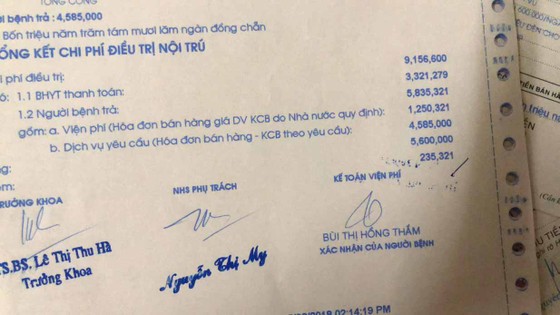 TỔNG CỘNG
ời bệnh trả : 4,585,000
Bốn triệu năm trăm tám mươi lăm ngàn đồng chẵn
ỔNG KẾT CHI PHÍ ĐIỀU TRỊ NỘI TRÚ
i phí điều trị: 9,156,600
ó: 1.1 BHYT thanh toán: 3,321,279
1.2 Người bệnh trả: 5,835,321
gồm: a. Viện phí (Hóa đơn bán hàng giá DV KCB do Nhà nước quy định): 1,250,321
b. Dịch vụ yêu cầu (Hóa đơn bán hàng - KCB theo yêu cầu): 4,585,000
ng: 5,600,000
êm: 235,321
RƯỞNG KHOA
NHS PHỤ TRÁCH
KẾ TOÁN VIỆN PHÍ
TS.BS. Lê Thị Thu Hà
Trưởng Khoa
Nguyễn Thị My
BÙI THỊ HỒNG THẮM
XÁC NHẬN CỦA NGƯỜI BỆNH
2018 02:14:19 PM
600,000/NGÀ